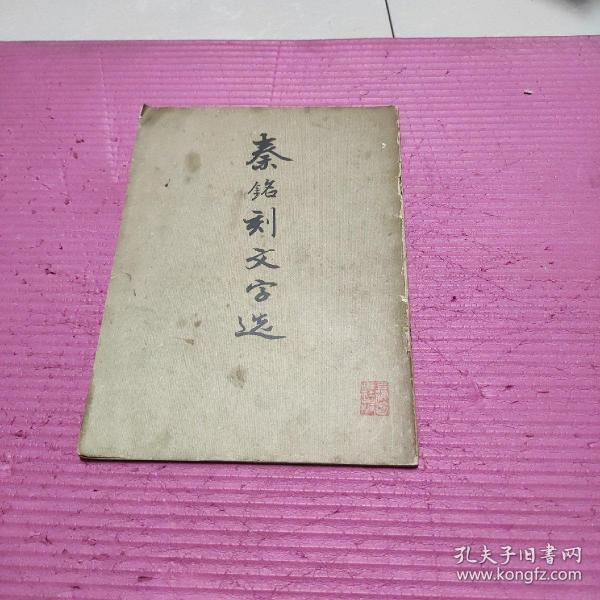 秦銘刻文字选
孔夫子旧书网
www.kongfz.com